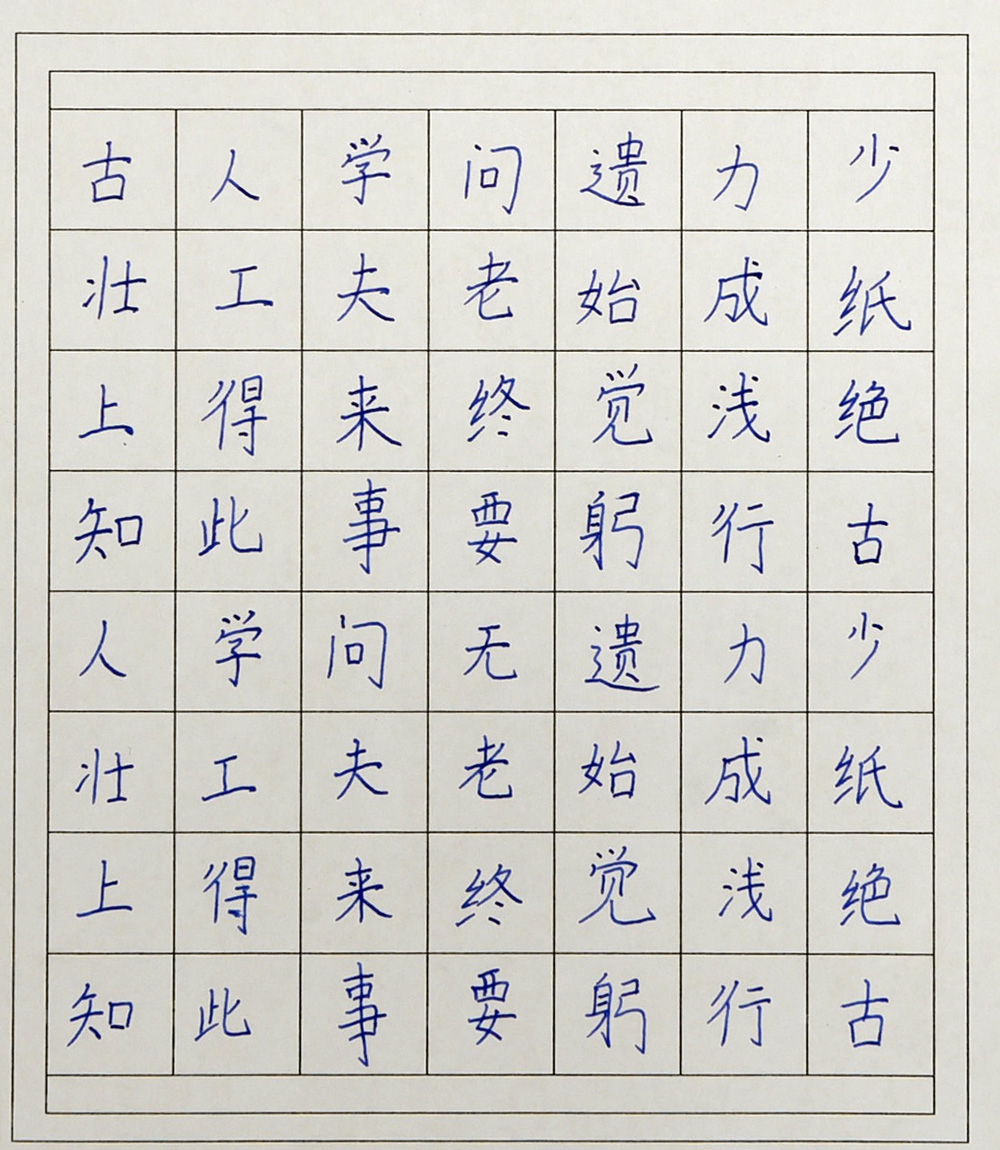 古人学问遗力少
壮工夫老始成纸
上得来终觉浅绝
知此事要躬行古
人学问无遗力少
壮工夫老始成纸
上得来终觉浅绝
知此事要躬行古